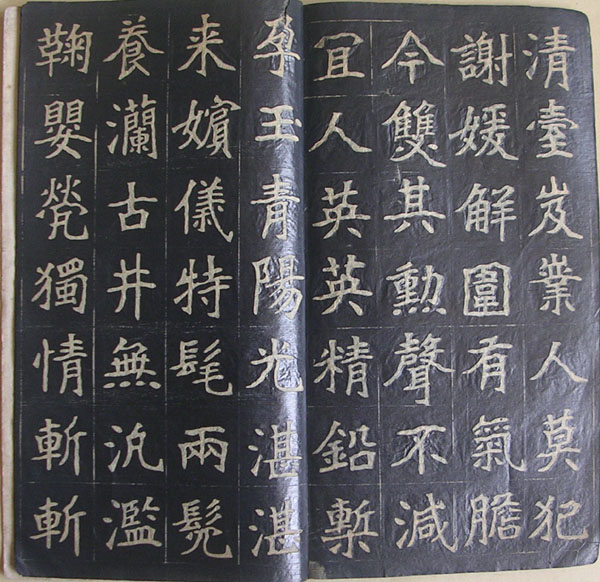 清臺岌業人莫犯
謝媛解圍有氣膽
今雙其勳聲不減
冝人英英精鉛槧
孕玉青陽光湛湛
来嬪儀特髦兩髧
養瀾古井無汎濫
鞠嬰煢獨情斬斬